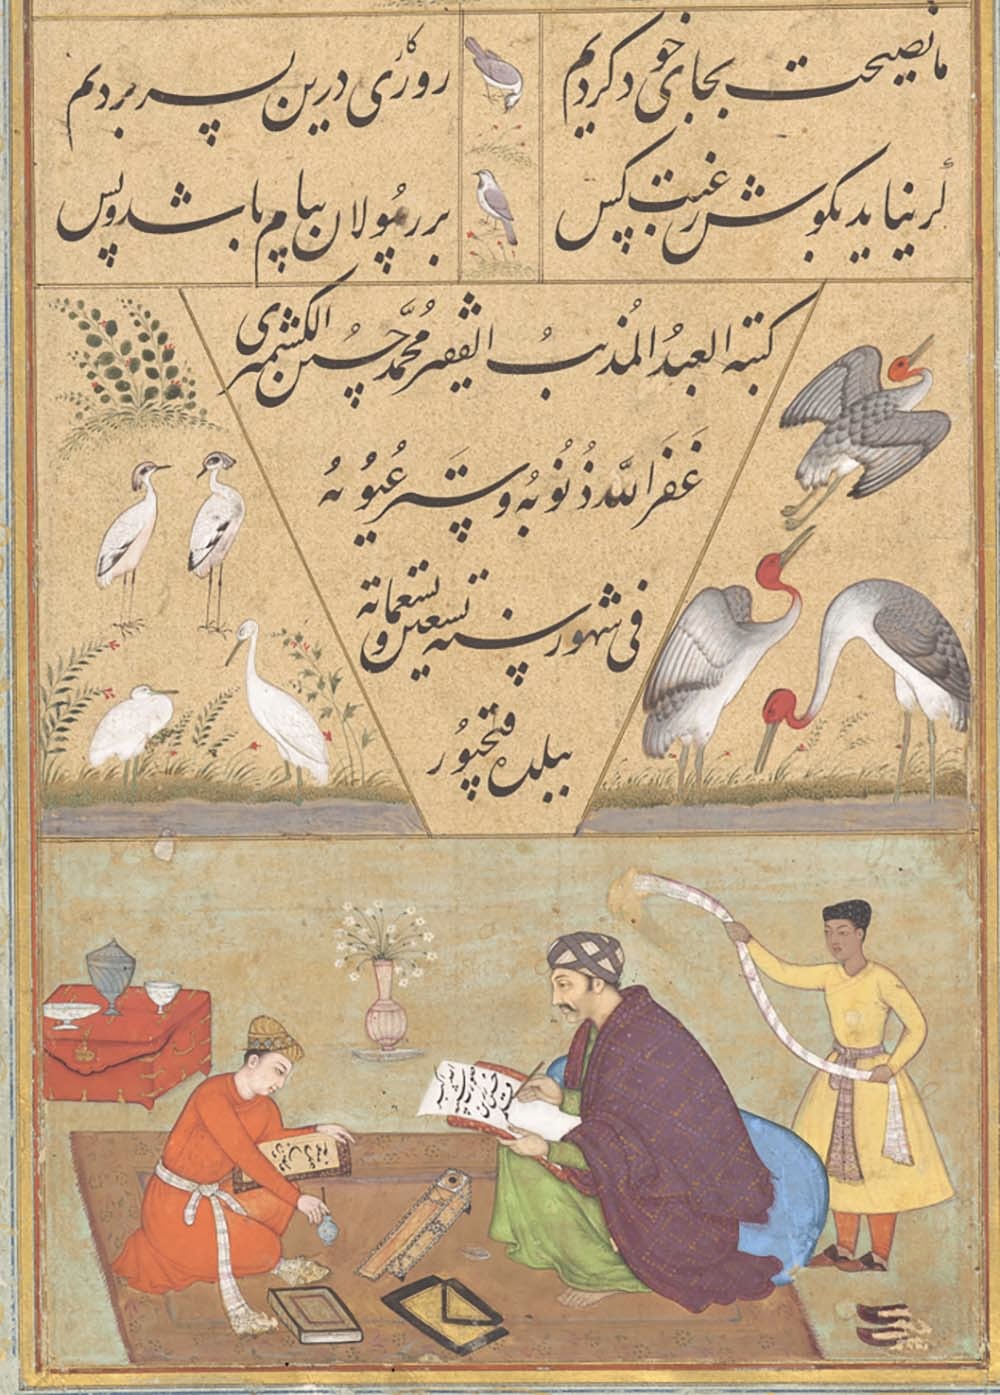 ما نصیحت بجای خود کردیم
روزگاری درین بسر بردیم
گر نیاید بگوش رغبت کس
بر رسولان پیام باشد و بس
کتبه العبدُ المُذنبُ الفقیر مُحمَّد حُسین الکشمیری
غَفَرَ اللّٰه ذُنُوبُه وسَتَر عُیُوبُهُ
فی شهور سنه تسعین و تسعمائه
ببلده فتحپُور